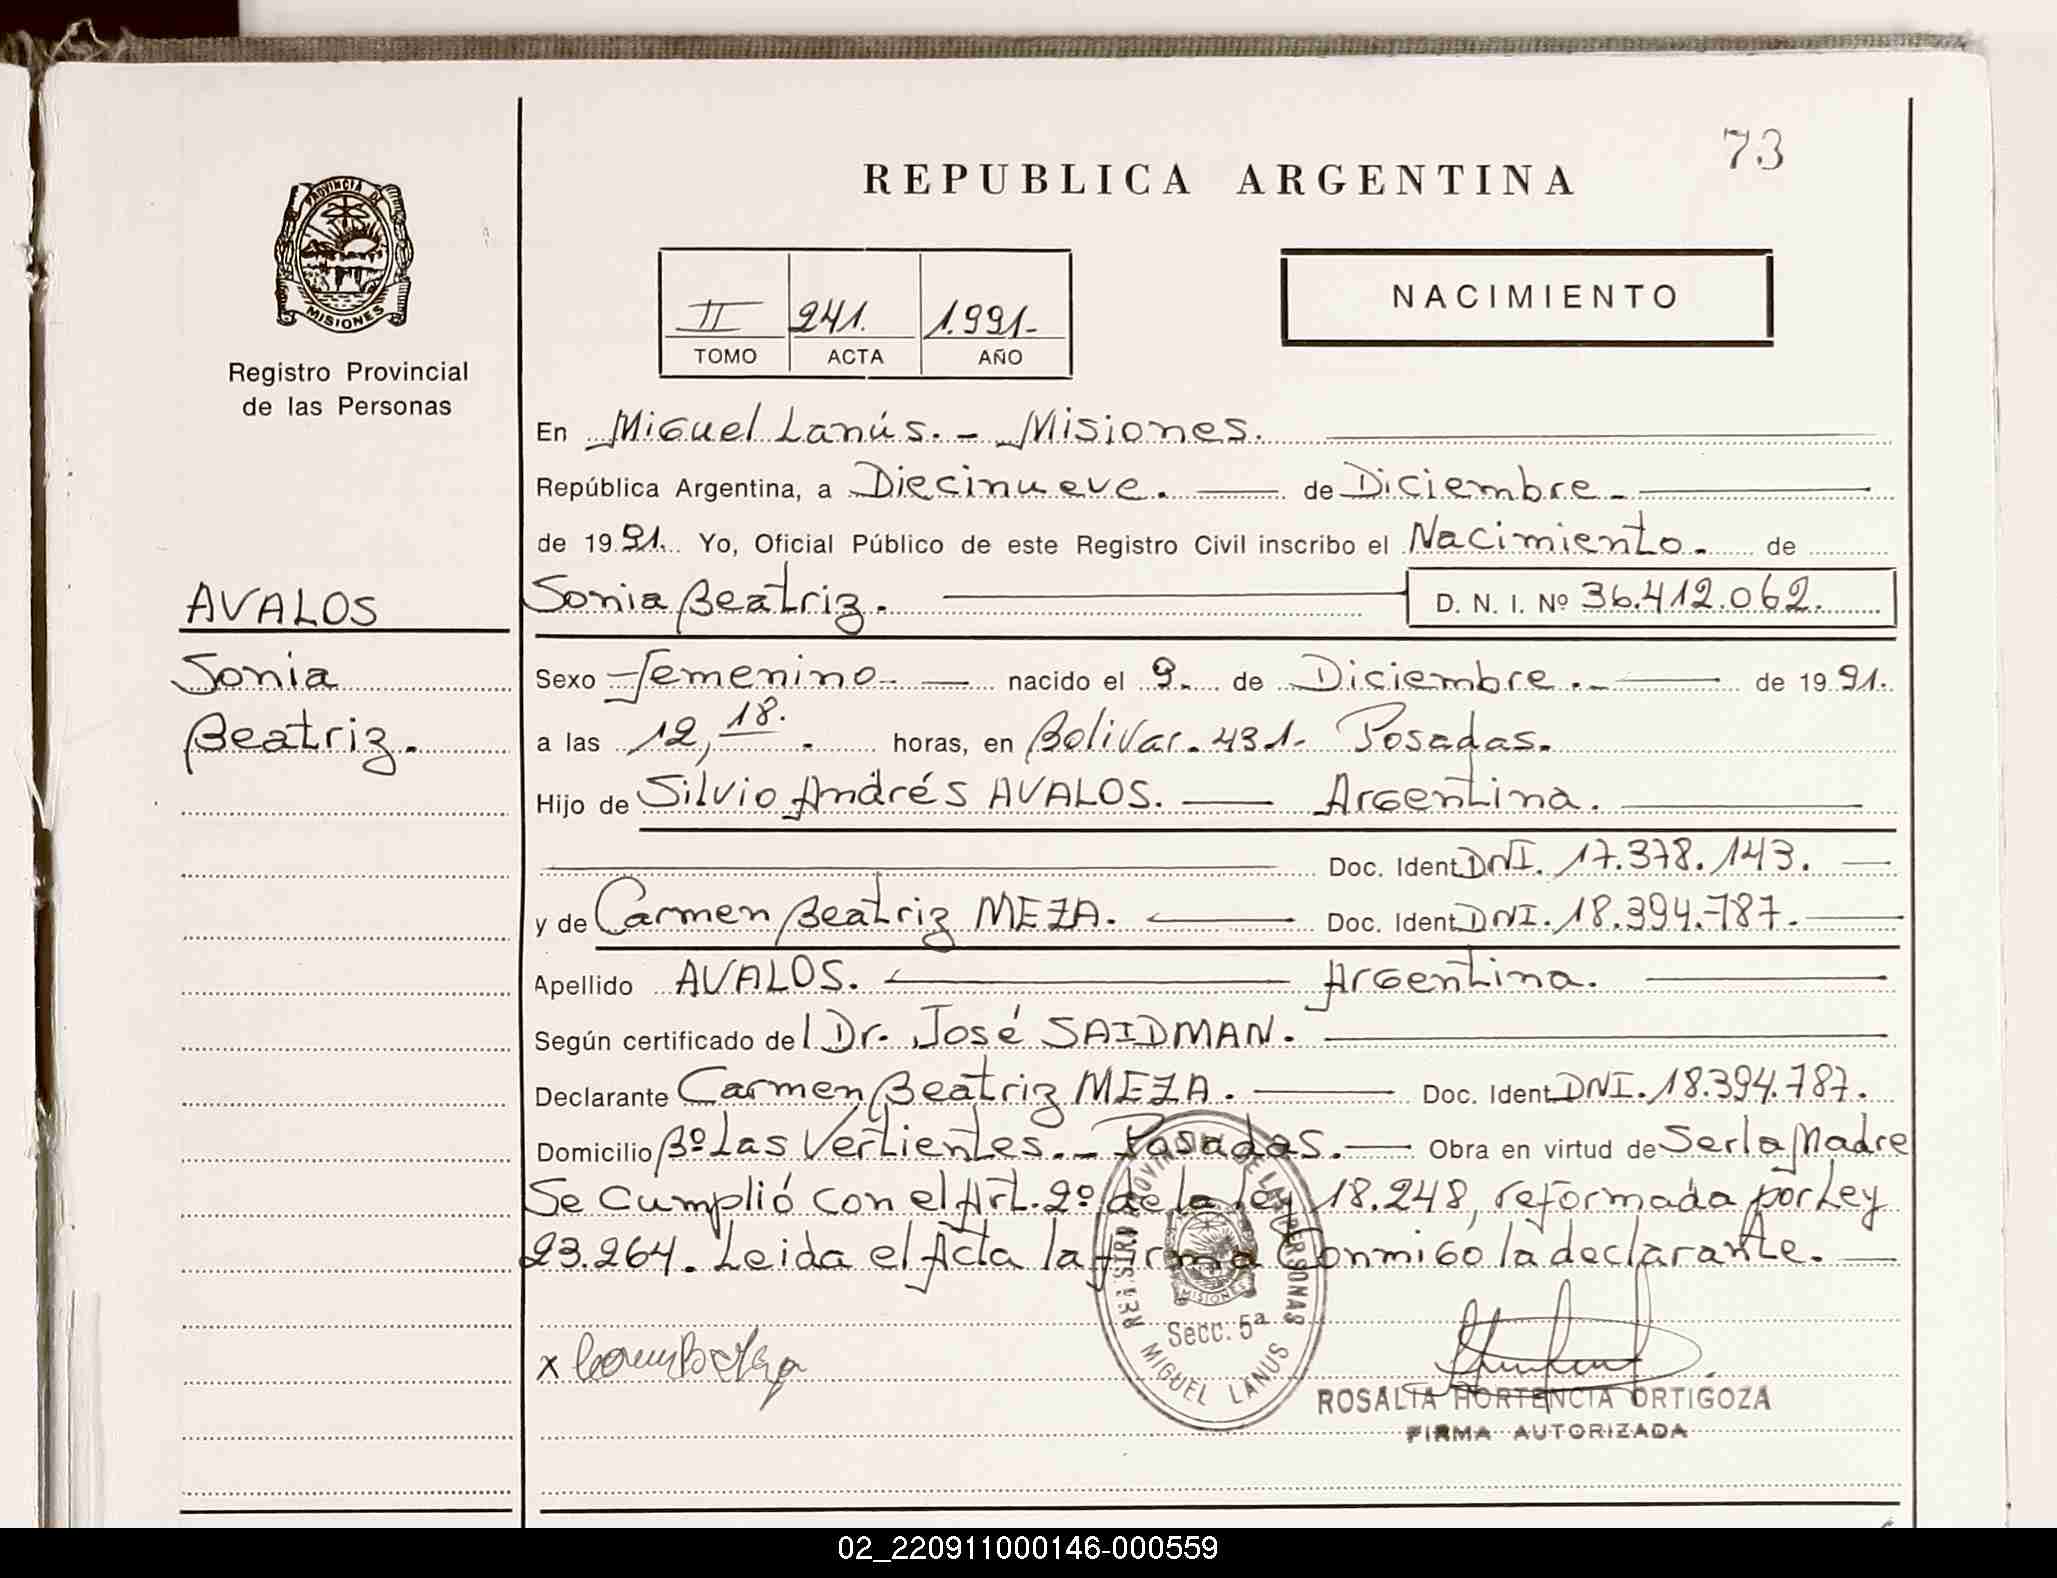 73
REPUBLICA ARGENTINA
PROVINCIA DE
MISIONES
Registro Provincial
de las Personas
II 241. 1.991.-
TOMO ACTA AÑO
NACIMIENTO
En Miguel Lanús. - Misiones.
República Argentina, a Diecinueve. de Diciembre.
de 19 91. Yo, Oficial Público de este Registro Civil inscribo el Nacimiento. de
AVALOS
Sonia Beatriz. D. N. I. Nº 36.412.062.
Sonia
Sexo Femenino nacido el 9. de Diciembre. de 19 91.
Beatriz.
a las 12,18. horas, en Bolivar. 431- Posadas.
Hijo de Silvio Andrés AVALOS. Argentina.
Doc. Ident. DNI. 17.378.143.
y de Carmen Beatriz MEZA. Doc. Ident. DNI. 18.394.787.
Apellido AVALOS. Argentina.
Según certificado del Dr. José SAIDMAN.
Declarante Carmen Beatriz MEZA. Doc. Ident. DNI. 18.394.787.
Domicilio Bº Las Vertientes. - Posadas. Obra en virtud de Ser la Madre
Se cumplió con el Art. 2º de la ley 18.248, reformada por Ley
23.264. Leida el Acta la firma Conmigo la declarante.
REGISTRO PROVINCIAL DE LAS PERSONAS
MISIONES
Secc. 5ª
MIGUEL LANUS
x
ROSALIA HORTENCIA ORTIGOZA
FIRMA AUTORIZADA
02_220911000146-000559